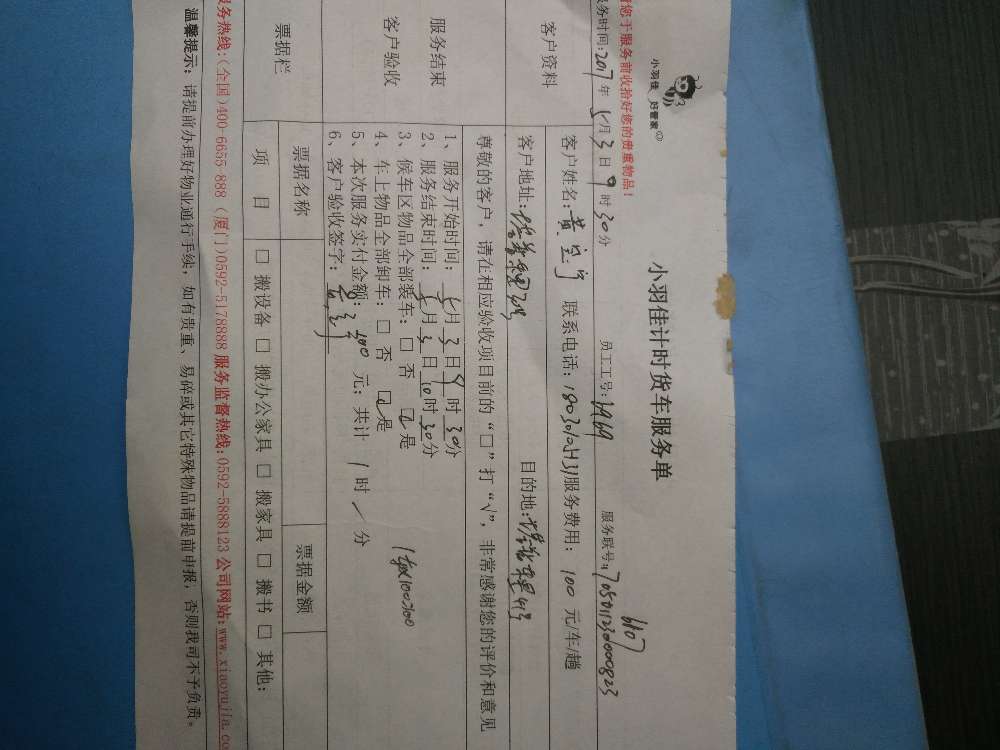 小羽佳 好管家
小羽佳计时货车服务单
您于服务前收拾好您的贵重物品!
务时间:2017年5月3日9时30分 员工工号: 服务联号:
客户资料
客户姓名:黄 联系电话: 服务费用:100元/车/趟
客户地址: 目的地:
尊敬的客户,请在相应验收项目前的“□”打“√”,非常感谢您的评价和意见
服务结束
客户验收
1、服务开始时间:5月3日9时30分
2、服务结束时间:5月3日10时30分
3、候车区物品全部装车:□否 ☑是
4、车上物品全部卸车:□否 ☑是
5、本次服务实付金额: 元;共计1时/分
6、客户验收签字:
票据栏
票据名称 票据金额
项目 □搬设备 □搬办公家具 □搬家具 □搬书 □其他:
服务热线:(全国)400-6655 888 (厦门)0592-5178888 服务监督热线:0592-5888123 公司网站:www.xiaoyujia.co
温馨提示:请提前办理好物业通行手续,如有贵重、易碎或其它特殊物品请提前申报,否则我司不予负责。